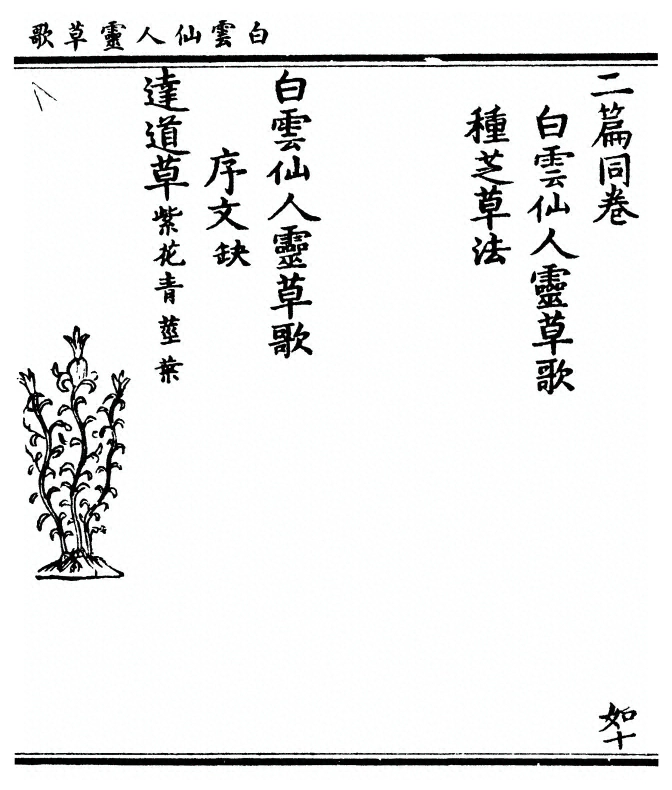 白雲仙人靈草歌
二篇同卷
白雲仙人靈草歌
種芝草法
如十
白雲仙人靈草歌
序文缺
達道草紫花青莖葉